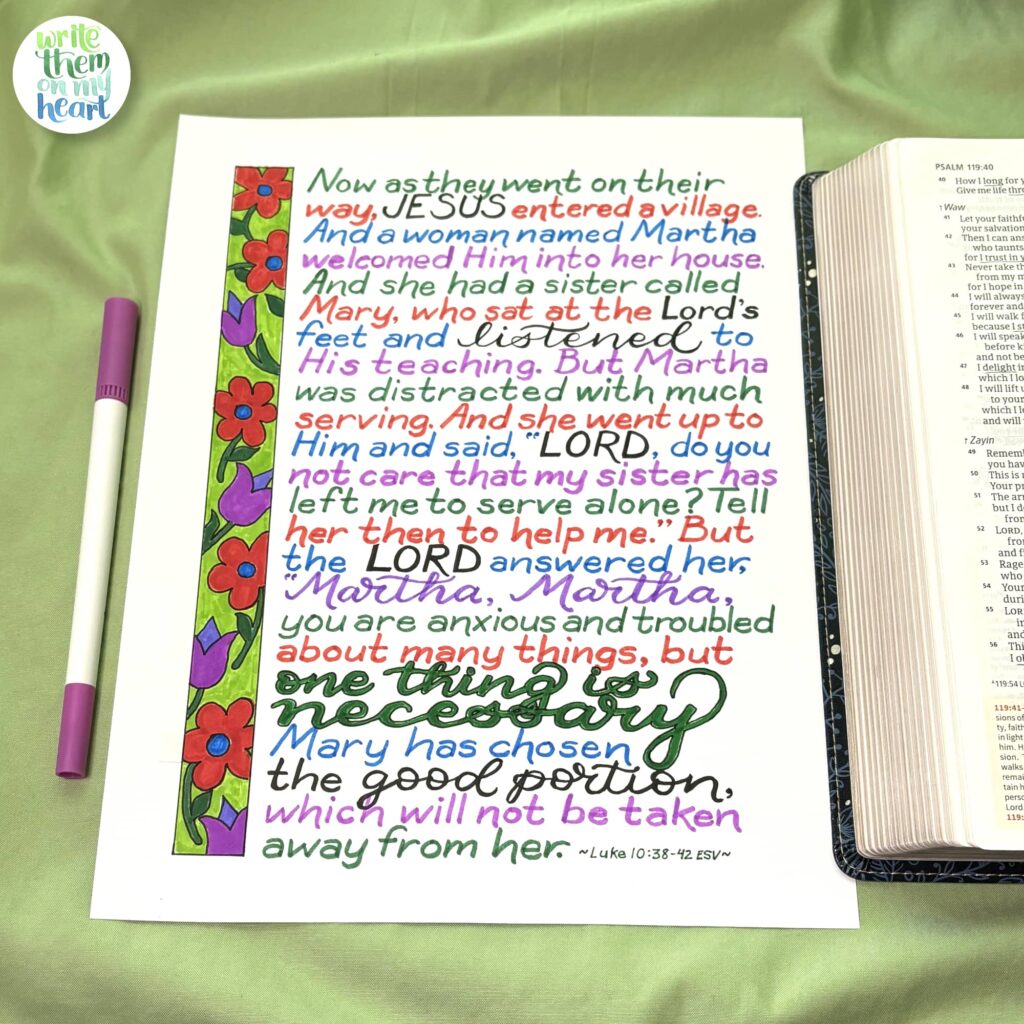 write
them
on my
heart
Now as they went on their
way, JESUS entered a village.
And a woman named Martha
welcomed Him into her house.
And she had a sister called
Mary, who sat at the Lord's
feet and listened to
His teaching. But Martha
was distracted with much
serving. And she went up to
Him and said, "LORD, do you
not care that my sister has
left me to serve alone? Tell
her then to help me." But
the LORD answered her,
"Martha, Martha,
you are anxious and troubled
about many things, but
one thing is
necessary
Mary has chosen
the good portion,
which will not be taken
away from her. ~Luke 10:38-42 ESV~
PSALM 119:40
40 How I long for y
Give me life thro
Waw
41 Let your faithfu
your salvation
42 Then I can ans
who taunts
for I trust in y
43 Never take th
from my m
for I hope in
44 I will always
forever and
45 I will walk f
because I s
46 I will speak
before k
and not be
47 I delight in
which I lo
48 I will lift u
to your
which I l
and will
Zayin
49 Rememb
you hav
50 This is
Your pr
51 The arr
but I do
from
52 LORD,
fro
and f
53 Rage
who
54 Your
duri
55 LORD
in
and
56 Thi
I o
119:54 L
119:41-
sions of
ty, faith
in light
him. H
sion. T
walks.
remai
tain h
perso
Lord
119: